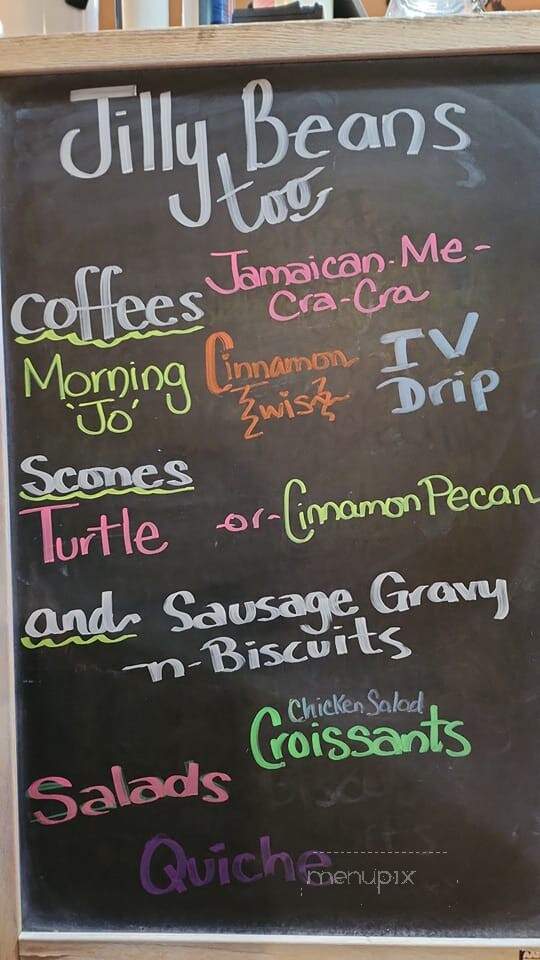 Jilly Beans
too
Coffees
Jamaican-Me-
Cra-Cra
Morning
'Jo'
Cinnamon
Twist
IV
Drip
Scones
Turtle -or- Cinnamon Pecan
and Sausage Gravy
-n-Biscuits
Chicken Salad
Croissants
Salads
Quiche
menupix